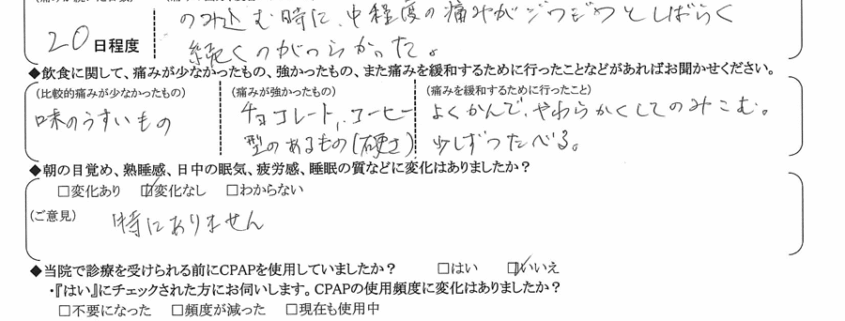 のみ込む時に、中程度の痛みがジワジワとしばらく
20日程度
続くのがつらかった。
◆飲食に関して、痛みが少なかったもの、強かったもの、また痛みを緩和するために行ったことなどがあればお聞かせください。
(比較的痛みが少なかったもの) (痛みが強かったもの) (痛みを緩和するために行ったこと)
味のうすいもの チョコレート、コーヒー よくかんで、やわらかくしてのみこむ。
型のあるもの(硬さ) 少しずつたべる。
◆朝の目覚め、熟睡感、日中の眠気、疲労感、睡眠の質などに変化はありましたか?
□変化あり ☑変化なし □わからない
(ご意見) 特にありません
◆当院で診療を受けられる前にCPAPを使用していましたか? □はい ☑いいえ
・『はい』にチェックされた方にお伺いします。CPAPの使用頻度に変化はありましたか?
□不要になった □頻度が減った □現在も使用中